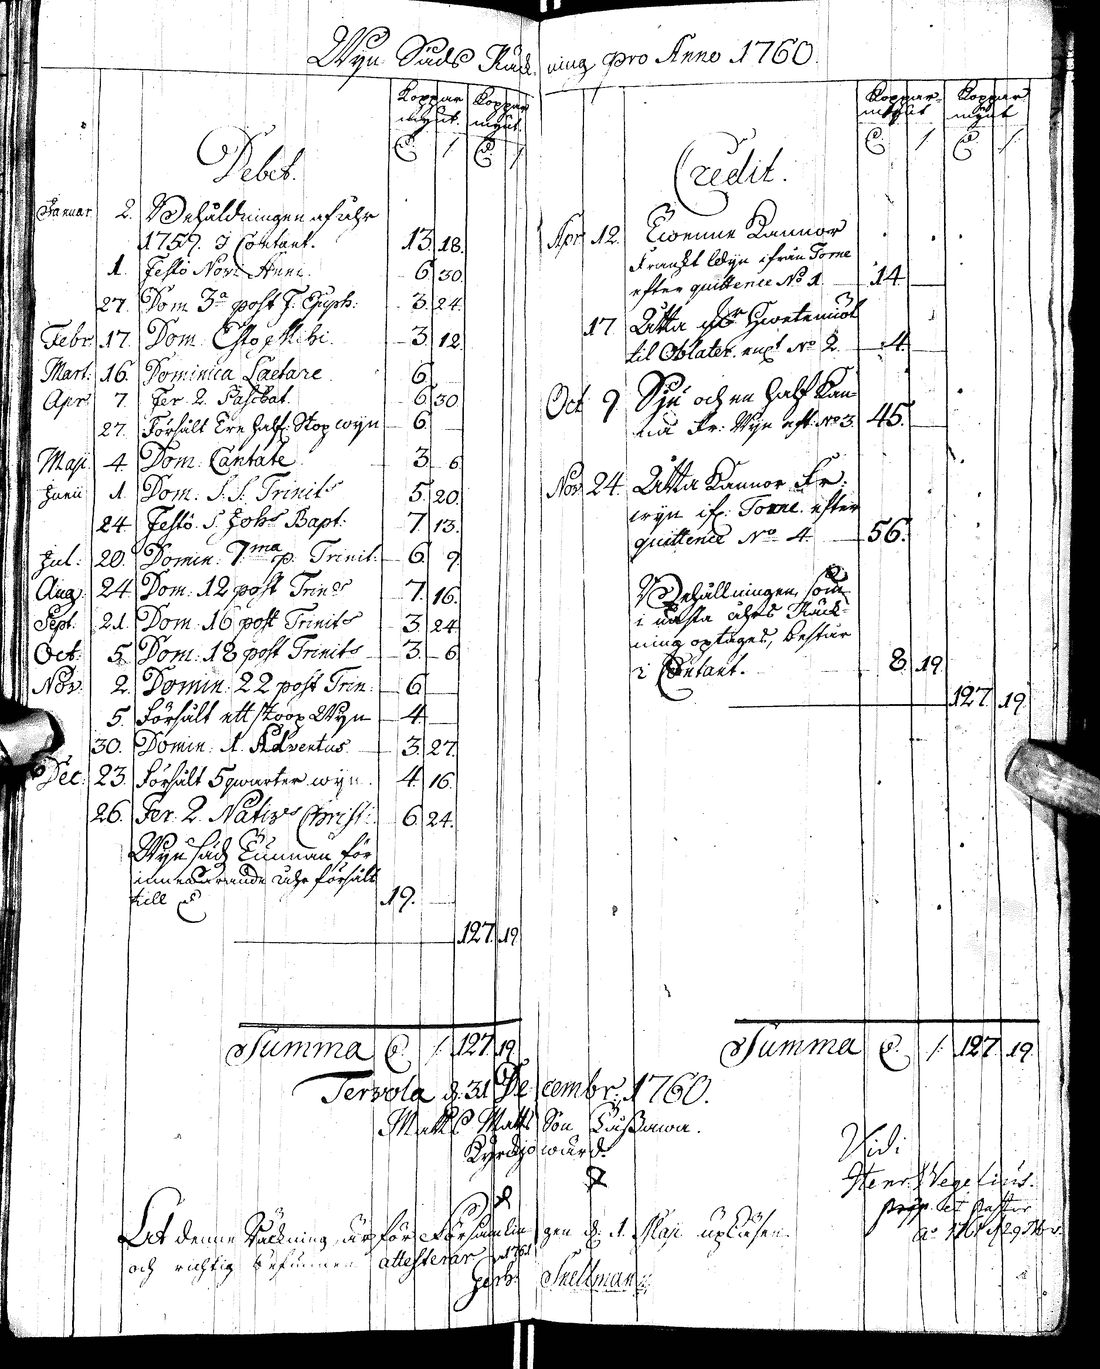 Wyn Säds Räkning pro Anno 1760.
Koppar mÿnt. Koppar mÿnt.
Debet.
Januar. 2. Behåldningen af åhr
1759. i Contant. 13. 18.
1. Festo Novi Anni. 6 30
27. Dom. 3a post f. Epiph: 3. 24
Febr. 17. Dom. Esto Mihi 3. 12
Mart. 16. Dominica Laetare 6
Apr. 7. Fer. 2. Paschat. 6 30
27. Försålt Ere half Stop wyn 6
Maji 4. Dom. Cantate 3 6.
Junii 1. Dom. S. S. Trinit. 5. 20.
24 Festo S. Johs Bapt. 7. 13.
Jul. 20. Domin. 7ma p. Trinit. 6. 9
Aug. 24 Dom. 12 post Trin. 7. 16.
Sept. 21. Dom. 16 post Trinit. 3 24
Oct. 5. Dom. 18 post Trinit. 3. 6
Nov. 2. Domin. 22 post Trin. 6
5. Försålt ett stoop Wyn 4
30. Domin. 1. Adventus 3. 27.
Dec. 23. Försålt 5 qwarter wyn. 4. 16.
26. Fer. 2. Nativ. Christi 6. 24.
Wyn säds Tunnan för
innewarande åhr försålt
till 19.
127. 19
Summa 127. 19.
Koppar mÿnt Koppar mÿnt
Credit.
Apr. 12. Twenne Kannor
Franskt Wyn ifrån Torne
efter quittence No 1 14
17 Åtta Hwetemiöl
til Oblater enl. No 2. 4.
Oct. 9 Sju och en half Kan-
na Fr: Wyn eft: No 3. 45.
Nov. 24. Åtta Kannor Fr:
wyn if. Torne efter
quittence No 4 56.
Behållningen, som
i nästa åhrs Räk-
ning optages, består
i Contant. 8 19.
127. 19.
Summa 127. 19.
Tervola d. 31 Decembr. 1760.
Matts Matts Son
Kyrckjowärd.
Vidi
Henr. Wegelius.
præp. et Pastor
At denne Räkning är för Församlingen d. 1. Maji upläsen
och richtig befunnen attesterar
Gerh. Snellman